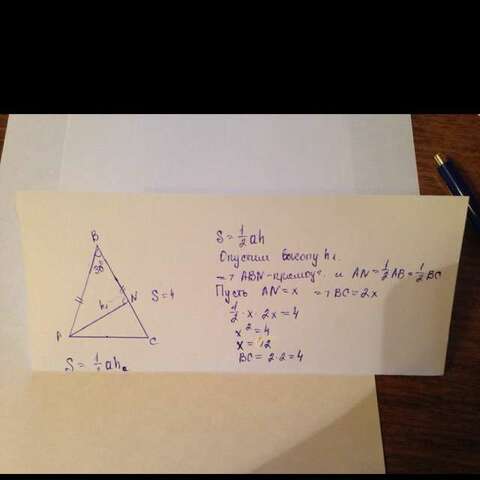 B
30°
h₁
N
S=4
A
C
S = ½ah
S = ½ah
Опустим высоту h₁.
=> ABN-прямоуг. и AN=½AB=½BC
Пусть AN=x => BC=2x
½·x·2x=4
x²=4
x=2
BC=2·2=4